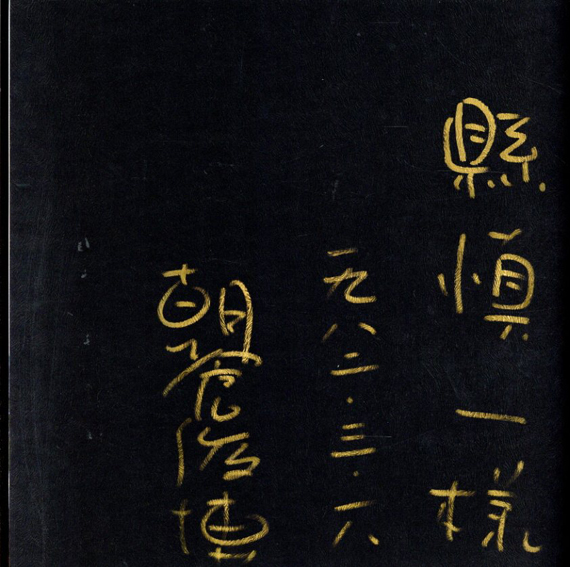 縣慎一様
一九八二.三.六
朝倉俊博